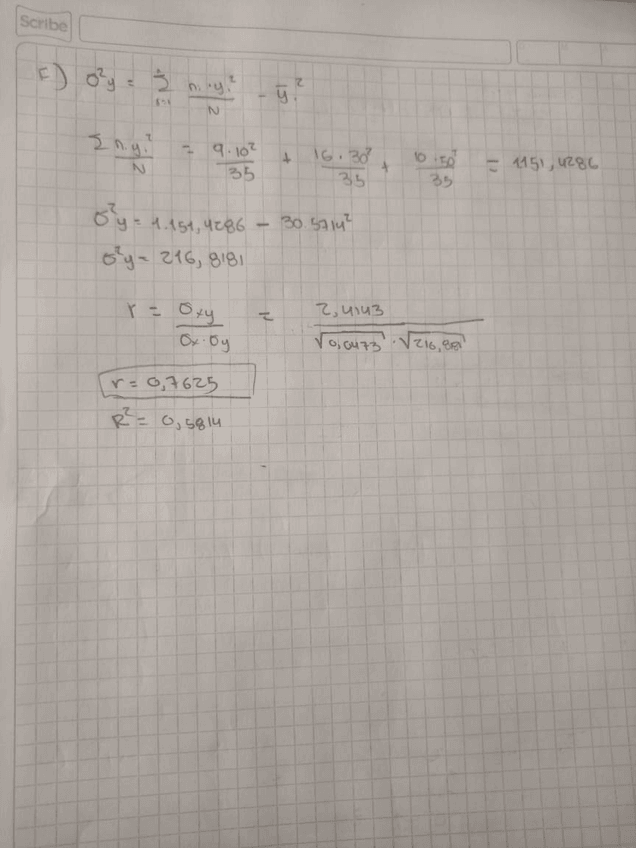 Scribe
E) σ²y = Σ i=1 nᵢ·yᵢ² / N - ȳ²
Σ nᵢyᵢ² / N = 9·10² / 35 + 16·30² / 35 + 10·50² / 35 = 1151,4286
σ²y = 1.151,4286 - 30.5714²
σ²y = 216,8181
r = σxy / σx·σy = 2,4143 / √0,0473 · √216,881
r = 0,7625
R² = 0,5814